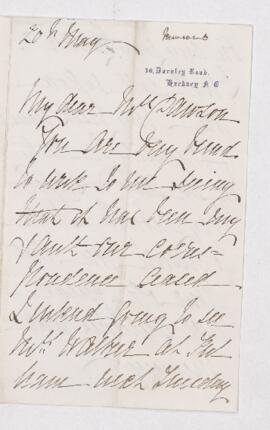 20th May
10, Darnley Road,
Hackney N. E
My dear Mrs Dawson
You are very kind
to write to me seeing
that it has been my
fault our corres-
pondence ceased.
I intend going to see
Mrs Walker at
ham next Tuesday